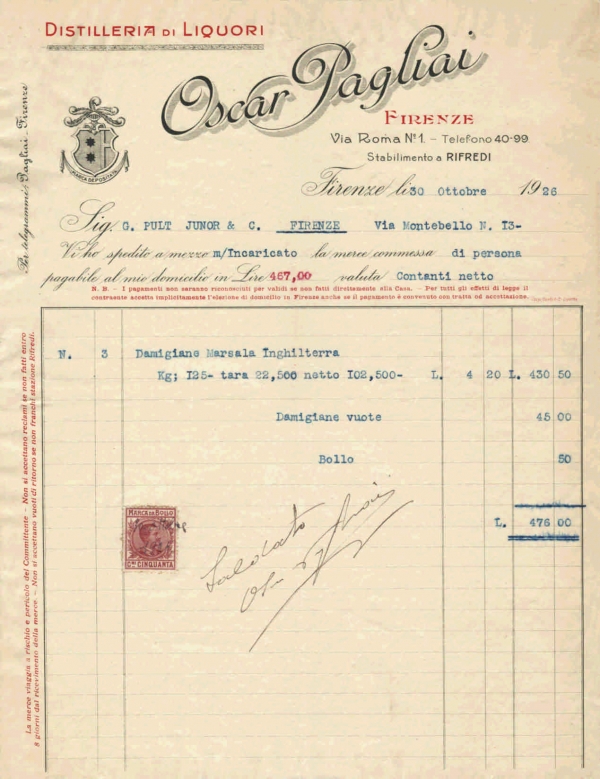 DISTILLERIA DI LIQUORI
Oscar Pagliai
FIRENZE
Via Roma Nº 1. - Telefono 40-99
Stabilimento a RIFREDI
Per telegrammi: Pagliai - Firenze
MARCA DEPOSITATA
Firenze li 30 Ottobre 1926
Sig. G. PULT JUNOR & C. FIRENZE Via Montebello N. I3-
Vi ho spedito a mezzo m/Incaricato la merce commessa di persona
pagabile al mio domicilio in Lire 467,00 valuta Contanti netto
N. B. - I pagamenti non saranno riconosciuti per validi se non fatti direttamente alla Casa. - Per tutti gli effetti di legge il
contraente accetta implicitamente l'elezione di domicilio in Firenze anche se il pagamento è convenuto con tratta od accettazione.
N. 3 Damigiane Marsala Inghilterra
Kg; I25- tara 22,500 netto I02,500- L. 4 20 L. 430 50
Damigiane vuote 45 00
Bollo 50
L. 476 00
MARCA DA BOLLO
C.MI CINQUANTA
Saldato
La merce viaggia a rischio e pericolo del Committente - Non si accettano reclami se non fatti entro
8 giorni dal ricevimento della merce. - Non si accettano vuoti di ritorno se non franchi stazione Rifredi.